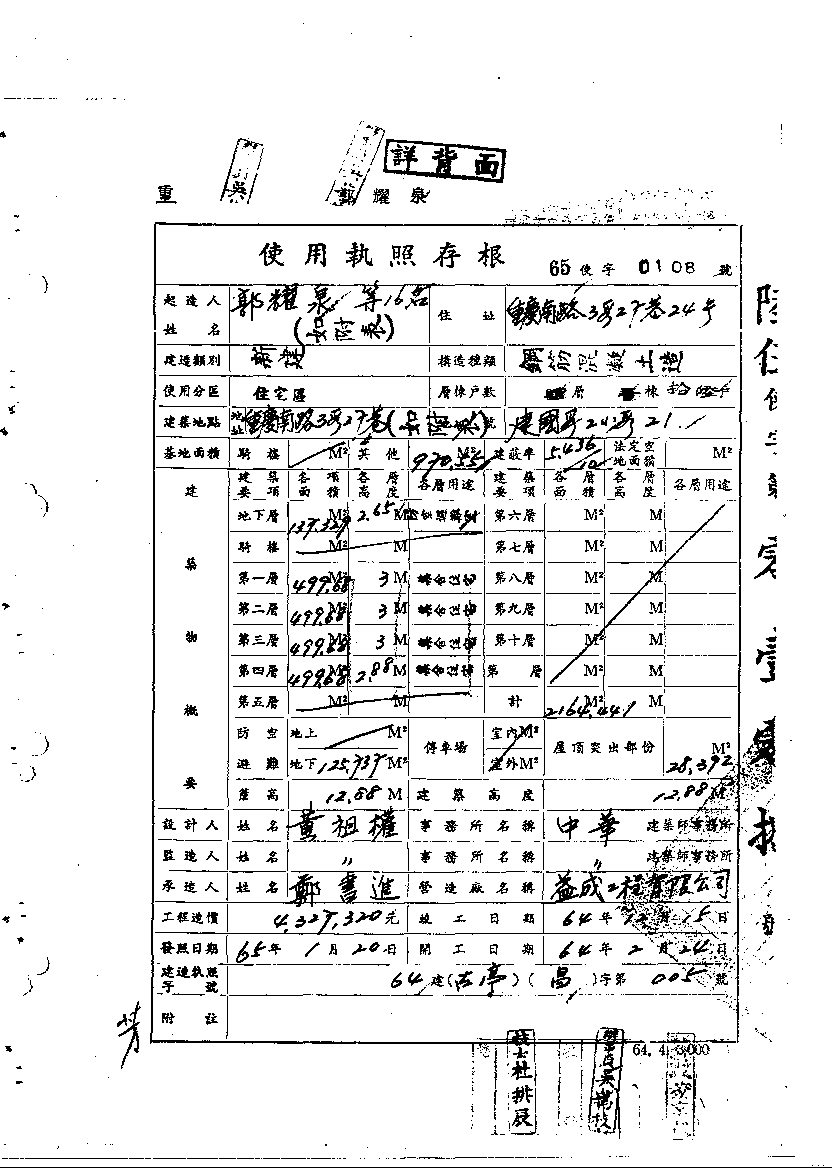 詳背面
重 吳 郭耀泉
使用執照存根 65使字0108號
起造人姓名 郭耀泉等16名(如附表) 住址 重慶南路3段27巷24号
建造類別 新建 構造種類 鋼筋混凝土造
使用分區 住宅區 層棟戶數 層 棟
建築地點 地址 重慶南路3段27巷(如附表)號 建國段
基地面積 騎樓 M² 其他 970.55 M² 建蔽率 法定空地面積 M²
建築物概要 建築要項 各項面積 各層高度 各層用途 建築要項 各層面積 各層高度 各層用途
地下層 137.329 M² 2.65 M 第六層 M² M
騎樓 M² M 第七層 M² M
第一層 499.68 M² 3 M 集合住宅 第八層 M² M
第二層 499.68 M² 3 M 集合住宅 第九層 M² M
第三層 499.68 M² 3 M 集合住宅 第十層 M² M
第四層 499.68 M² 2.88 M 集合住宅 第 層 M² M
第五層 M² M 計 2164.441 M² M
防空避難 地上 M² 停車場 室內M² 屋頂突出部份 28.392 M²
地下 125.737 M² 室外M²
簷高 12.88 M 建築高度 12.88 M
設計人 姓名 黃祖權 事務所名稱 中華 建築師事務所
監造人 姓名 〃 事務所名稱 〃 建築師事務所
承造人 姓名 鄭書進 營造廠名稱 益成工程有限公司
工程造價 4,327,320元 竣工日期 64年12月15日
發照日期 65年1月20日 開工日期 64年2月24日
建造執照字號 64建(古亭)(昌)字第005號
附註
64. 4. 3,000
技士杜排辰